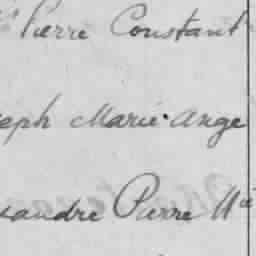 Pierre Constant
eph Marie-Ange
xandre Pierre Ma